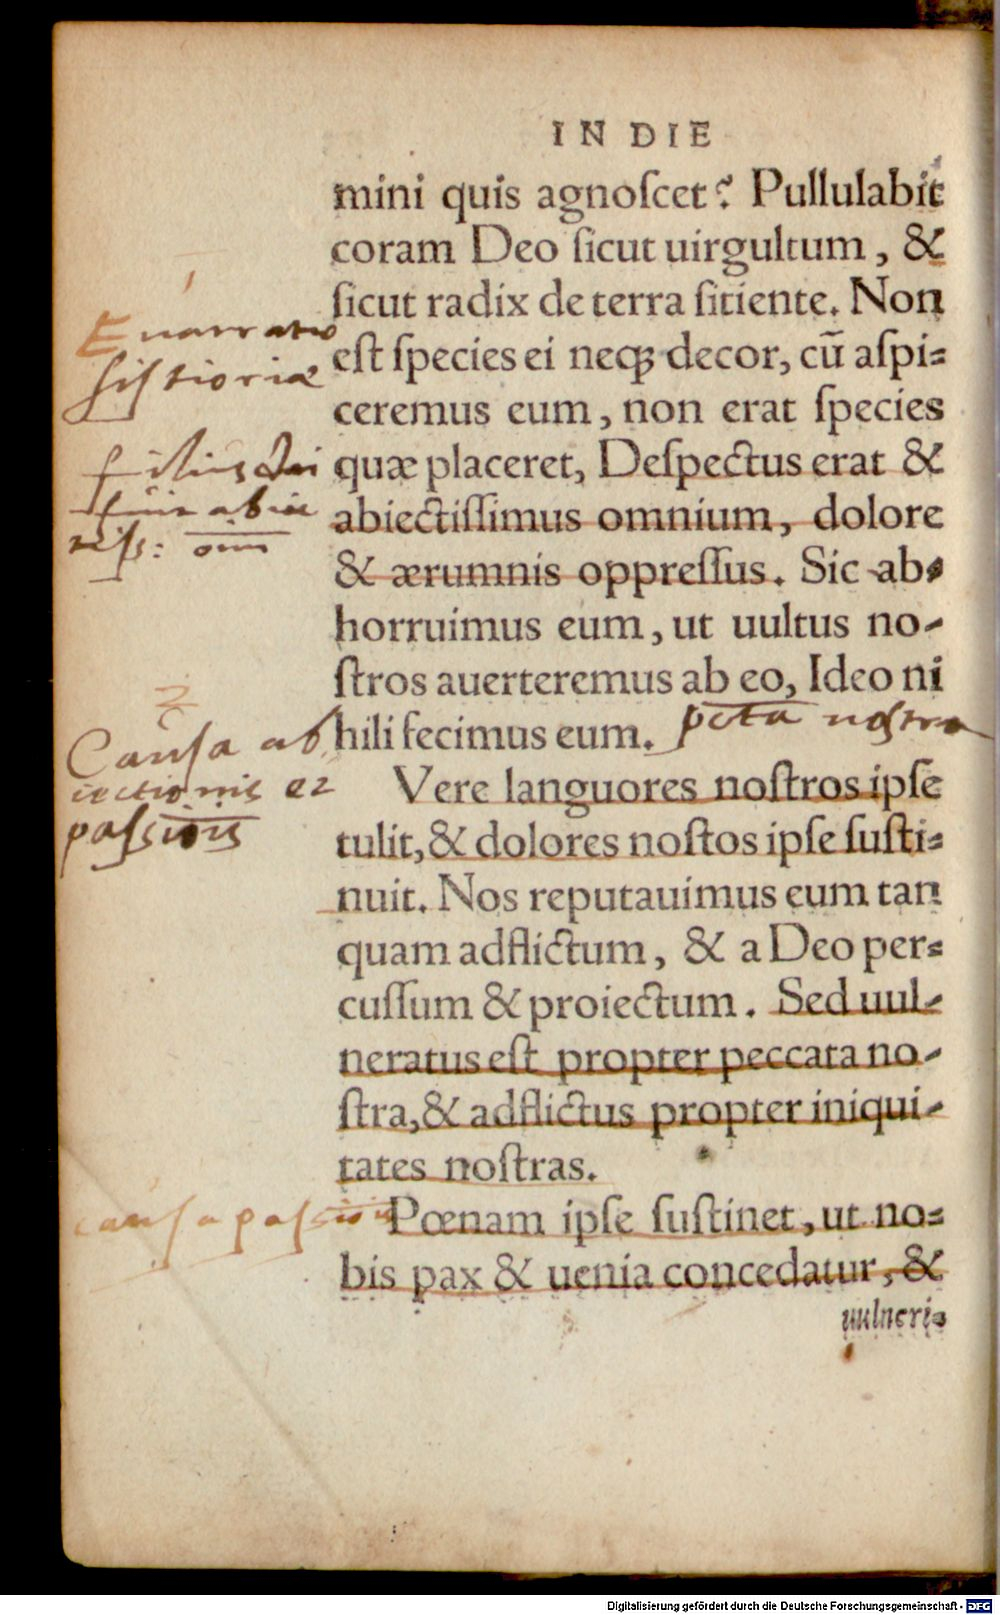 IN DIE
mini quis agnoſcet? Pullulabit
coram Deo ſicut uirgultum, &
ſicut radix de terra ſitiente. Non
eſt ſpecies ei neqꝫ decor, cū aſpi=
ceremus eum, non erat ſpecies
quæ placeret, Deſpectus erat &
abiectiſſimus omnium, dolore
& ærumnis oppreſſus. Sic ab-
horruimus eum, ut uultus no-
ſtros auerteremus ab eo, Ideo ni
hili fecimus eum.
pctā noſtra
Vere languores noſtros ipſe
tulit, & dolores noſtos ipſe ſuſti=
nuit. Nos reputauimus eum tan
quam adflictum, & a Deo per=
cuſſum & proiectum. Sed uul-
neratus eſt propter peccata no-
ſtra, & adflictus propter iniqui-
tates noſtras.
Pœnam ipſe ſuſtinet, ut no=
bis pax & uenia concedatur, &
uulneri-
1
Enarratio
hiſtioriæ
filius Dei
fuit abiec
tiſſ: om̄
2
Cauſa ab
iectionis et
paſſiōis
cauſa paſſiōis
Digitalisierung gefördert durch die Deutsche Forschungsgemeinschaft - DFG